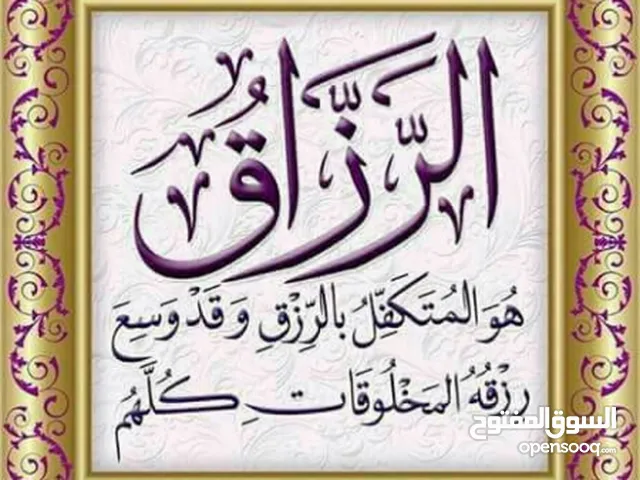 الرَّزَّاقُ
هُوَ المُتَكَفِّلُ بِالرِّزْقِ وَقَدْ وَسِعَ
رِزْقُهُ المَخْلُوقَاتِ كُلَّهُم
السوق المفتوح
opensooq.com